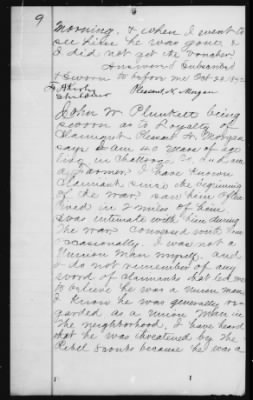 9
Morning, & when I went to
see him he was gone &
I did not get the voucher
Answered Subscribed
& Sworn to before me Oct 22 1872
Pleasant N. Morgan
John W. Plunkett being
sworn as to Loyalty of
Claimant Pleasant N Morgan
says I am 40 years of age
live in Chattooga Co. and am
a Farmer I have known
Claimant since the beginning
of the war saw him often
lived in 2 miles of him
was intimate with him during
the war conversed with him
occasionally. I was not a
Union Man myself, and
do not remember of any
word of claimants that led me
to believe he was a Union man
I know he was generally re-
garded as a Union Man in
the neighborhood, I have heard
that he was threatened by the
Rebel Scouts because he was a